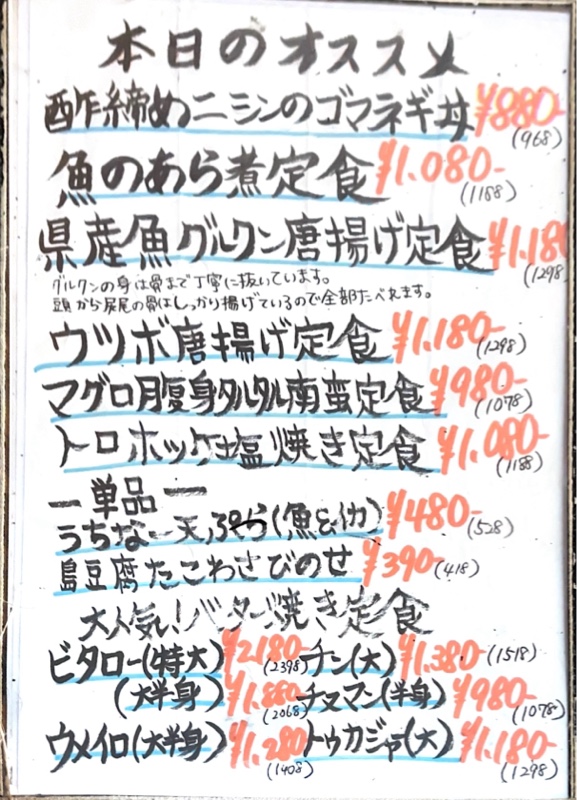 本日のオススメ
酢締めニシンのゴマネギ丼 ¥880- (968)
魚のあら煮定食 ¥1,080- (1188)
県産魚グルクン唐揚げ定食 ¥1,180 (1298)
グルクンの身は骨まで丁寧に抜いています。
頭から尻尾の骨はしっかり揚げているので全部たべれます。
ウツボ唐揚げ定食 ¥1,180- (1298)
マグロ腹身タルタル南蛮定食 ¥980- (1078)
トロホッケ塩焼き定食 ¥1,080- (1188)
ー単品ー
うちなー天ぷら(魚&イカ) ¥480- (528)
島豆腐たこわさびのせ ¥390- (418)
大人気!バター焼き定食
ビタロー(特大) ¥2180- (2398) チン(大) ¥1,380- (1518)
(大半身) ¥1,880 (2068) チヌマン(半身) ¥980- (1078)
ウメイロ(大半身) ¥1,280 (1408) トゥカジャー(大) ¥1,180- (1298)